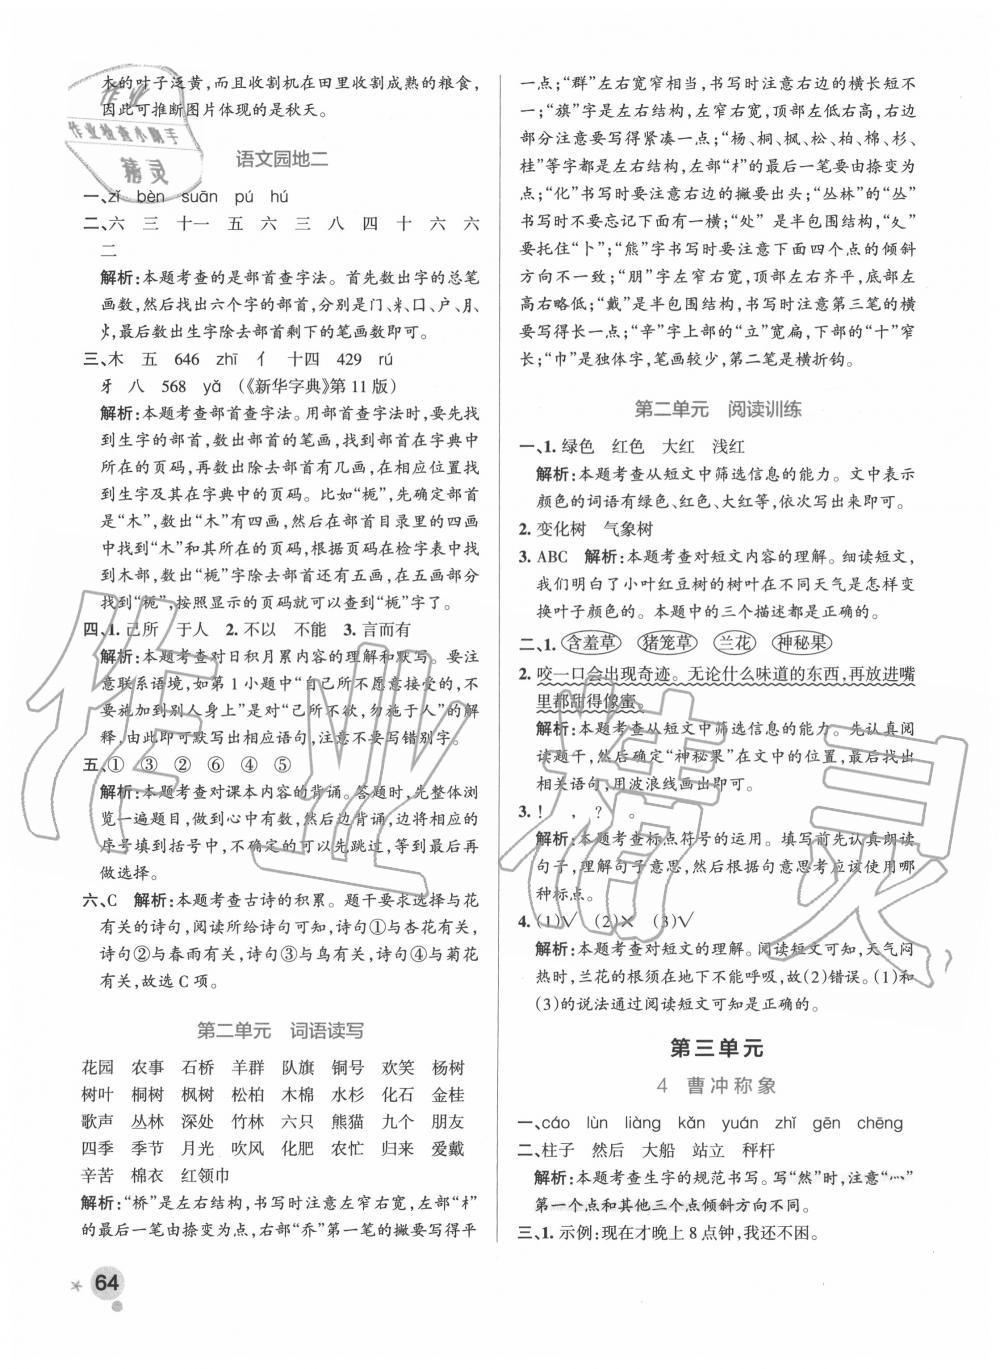 木的叶子泛黄,而且收割机在田里收割成熟的粮食,
因此可推断图片体现的是秋天。
语文园地二
一、zǐ bèn suān pú hú
二、六 三 十一 五 六 三 八 四 十 六 六
二
解析:本题考查的是部首查字法。首先数出字的总笔
画数,然后找出六个字的部首,分别是门、米、口、户、月、
火,最后数出生字除去部首剩下的笔画数即可。
三、木 五 646 zhī 亻 十四 429 rú
牙 八 568 yǎ (《新华字典》第11版)
解析:本题考查部首查字法。用部首查字法时,要先找
到生字的部首,数出部首的笔画,然后找到部首在字典中
所在的页码,再数出除去部首有几画,在相应位置找
到生字及其在字典中的页码。比如“栀”,先确定部首
是“木”,数出“木”有四画,然后在部首目录里的四画
中找到“木”和其所在的页码,根据页码在检字表中找
到木部,数出“栀”字除去部首还有五画,在五画部分
找到“栀”,按照显示的页码就可以找到“栀”字了。
四、1. 己所 于人 2. 不以 不能 3. 言而有
解析:本题考查对日积月累内容的理解和默写。要注
意联系语境,如第1小题中“自己所不愿意接受的,不
要施加到别人身上”是对“己所不欲,勿施于人”的解
释,由此即可默写出相应语句,注意不要写错别字。
五、① ③ ② ⑥ ④ ⑤
解析:本题考查对课本内容的背诵。答题时,先整体浏
览一遍题目,做到心中有数,然后边背诵,边将相应的
序号填到括号中,不确定的可以先跳过,等到最后再
做选择。
六、C 解析:本题考查古诗的积累。题干要求选择与花
有关的诗句,阅读所给诗句可知,诗句①与杏花有关,
诗句②与春雨有关,诗句③与鸟有关,诗句④与菊花
有关,故选C项。
第二单元 词语读写
花园 农事 石桥 羊群 队旗 铜号 欢笑 杨树
树叶 桐树 枫树 松柏 木棉 水杉 化石 金桂
歌声 丛林 深处 竹林 六只 熊猫 九个 朋友
四季 季节 月光 吹风 化肥 农忙 归来 爱戴
辛苦 棉衣 红领巾
解析:“桥”是左右结构,书写时注意左窄右宽,左部“木”
的最后一笔由捺变为点,右部“乔”第一笔的撇要写得平
64
一点;“群”左右宽窄相当,书写时注意右边的横长短不
一;“旗”字是左右结构,左窄右宽,顶部左低右高,右边
部分注意要写得紧凑一点;“杨、桐、枫、松、柏、棉、杉、
桂”等字都是左右结构,左部“木”的最后一笔要由捺变为
点;“化”书写时要注意右边的撇要出头;“丛林”的“丛”
书写时不要忘记下面有一横;“处”是半包围结构,“夂”
要托住“卜”;“熊”字书写时要注意下面四个点的倾斜
方向不一致;“朋”字左窄右宽,顶部左右齐平,底部左
高右略低;“戴”是半包围结构,书写时注意第三笔的横
要写得长一点;“辛”字上部的“立”宽扁,下部的“十”窄
长;“巾”是独体字,笔画较少,第二笔是横折钩。
第二单元 阅读训练
一、1. 绿色 红色 大红 浅红
解析:本题考查从短文中筛选信息的能力。文中表示
颜色的词语有绿色、红色、大红等,依次写出来即可。
2. 变化树 气象树
3. ABC 解析:本题考查对短文内容的理解。细读短文,
我们明白了小叶红豆树的树叶在不同天气是怎样变
换叶子颜色的。本题中的三个描述都是正确的。
二、1. 含羞草 猪笼草 兰花 神秘果
2. 咬一口会出现奇迹。无论什么味道的东西,再放进嘴
里都甜得像蜜。
解析:本题考查从短文中筛选信息的能力。先认真阅
读题干,然后确定“神秘果”在文中的位置,最后找出
相关语句,用波浪线画出即可。
3. ! , ? 。
解析:本题考查标点符号的运用。填写前先认真朗读
句子,理解句子意思,然后根据句意思考应该使用哪
种标点。
4. (1)√ (2)× (3)√
解析:本题考查对短文的理解。阅读短文可知,天气闷
热时,兰花的根须在地下不能呼吸,故(2)错误。(1)和
(3)的说法通过阅读短文可知是正确的。
第三单元
4 曹冲称象
一、cáo lùn liàng kǎn yuán zhǐ gēn chēng
二、柱子 然后 大船 站立 秤杆
解析:本题考查生字的规范书写。写“然”时,注意“灬”
第一个点和其他三个点倾斜方向不同。
三、1. 示例:现在才晚上8点钟,我还不困。
作业
作业检查小助手
精灵
作业精灵